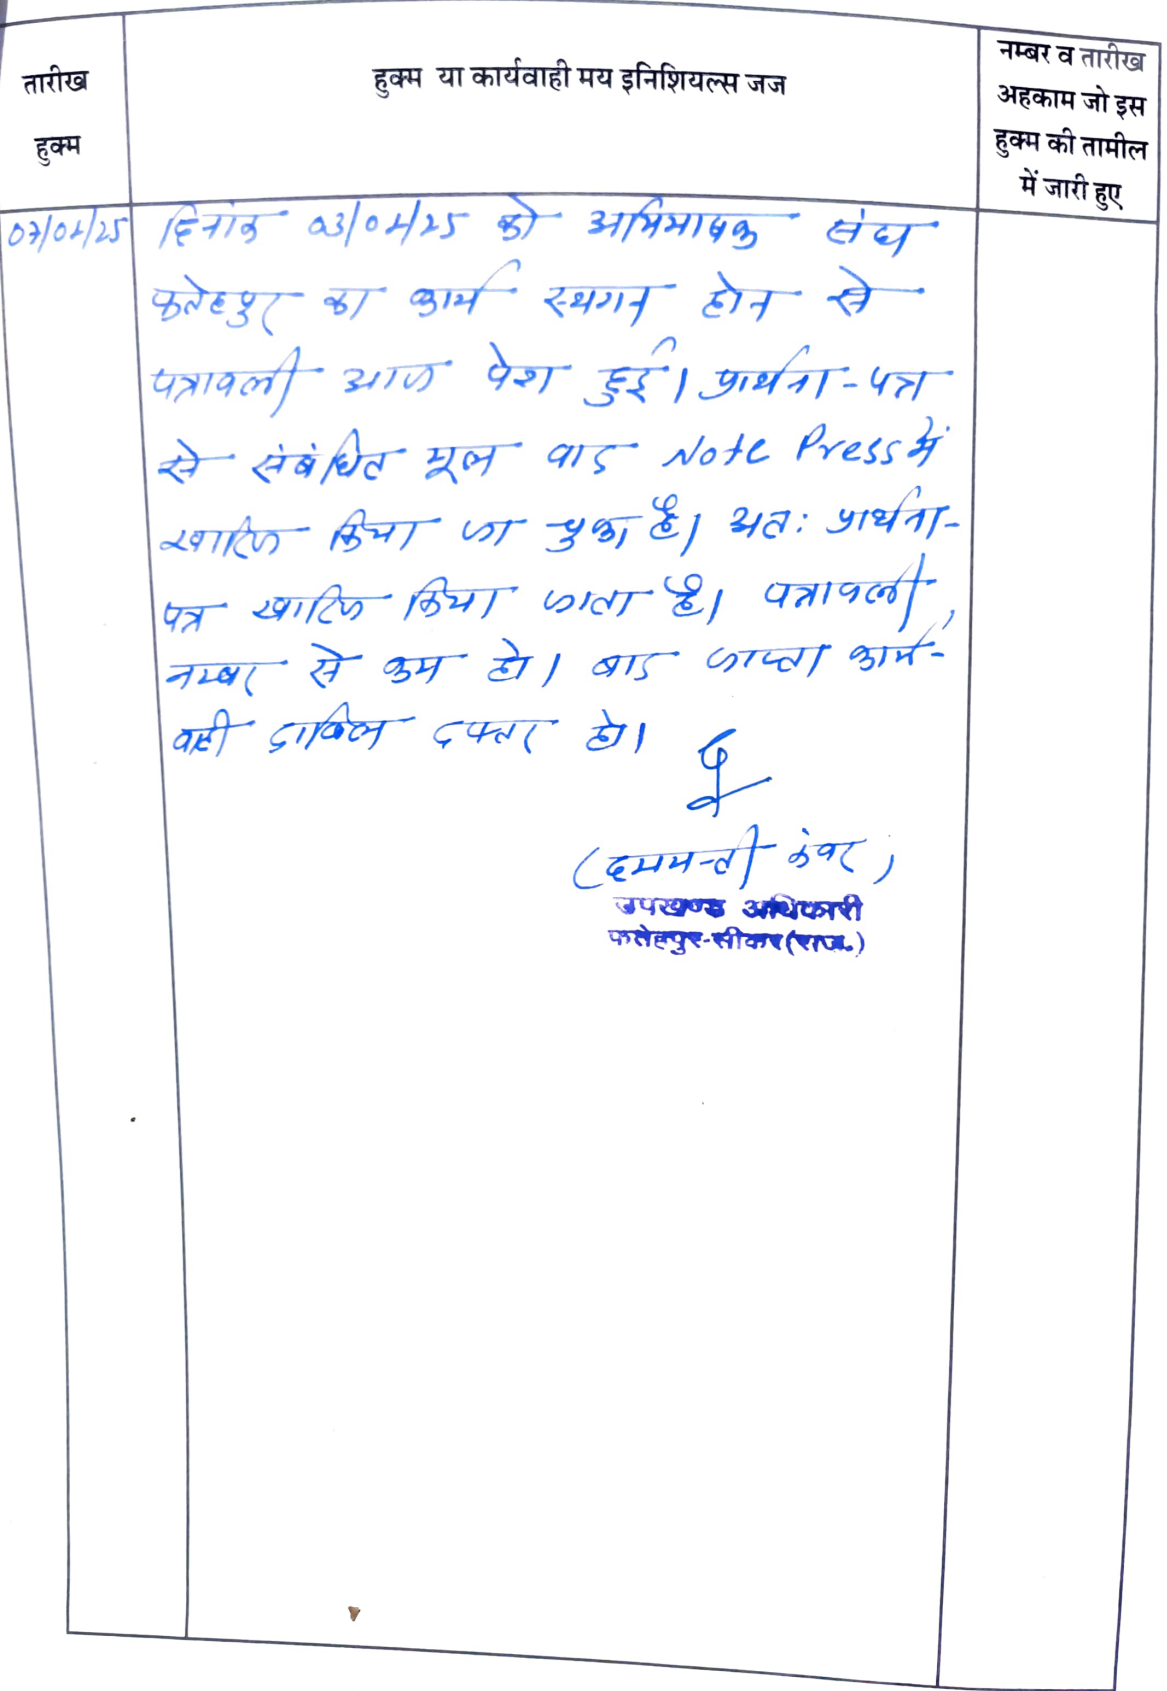 तारीख
हुक्म
हुक्म या कार्यवाही मय इनिशियल्स जज
नम्बर व तारीख
अहकाम जो इस
हुक्म की तामील
में जारी हुए
07/04/25
दिनांक 03/04/25 को अभिभाषक संघ
फतेहपुर का कार्य स्थगन होने से
पत्रावली आज पेश हुई। प्रार्थना-पत्र
से संबंधित मूल वाद Note Press में
खारिज किया जा चुका है। अतः प्रार्थना-
पत्र खारिज किया जाता है। पत्रावली
नम्बर से कम हो। बाद जाप्ता कार्य-
वाही दाखिल दफ्तर हो।
(दमयन्ती कंवर)
उपखण्ड अधिकारी
फतेहपुर-सीकर(राज.)